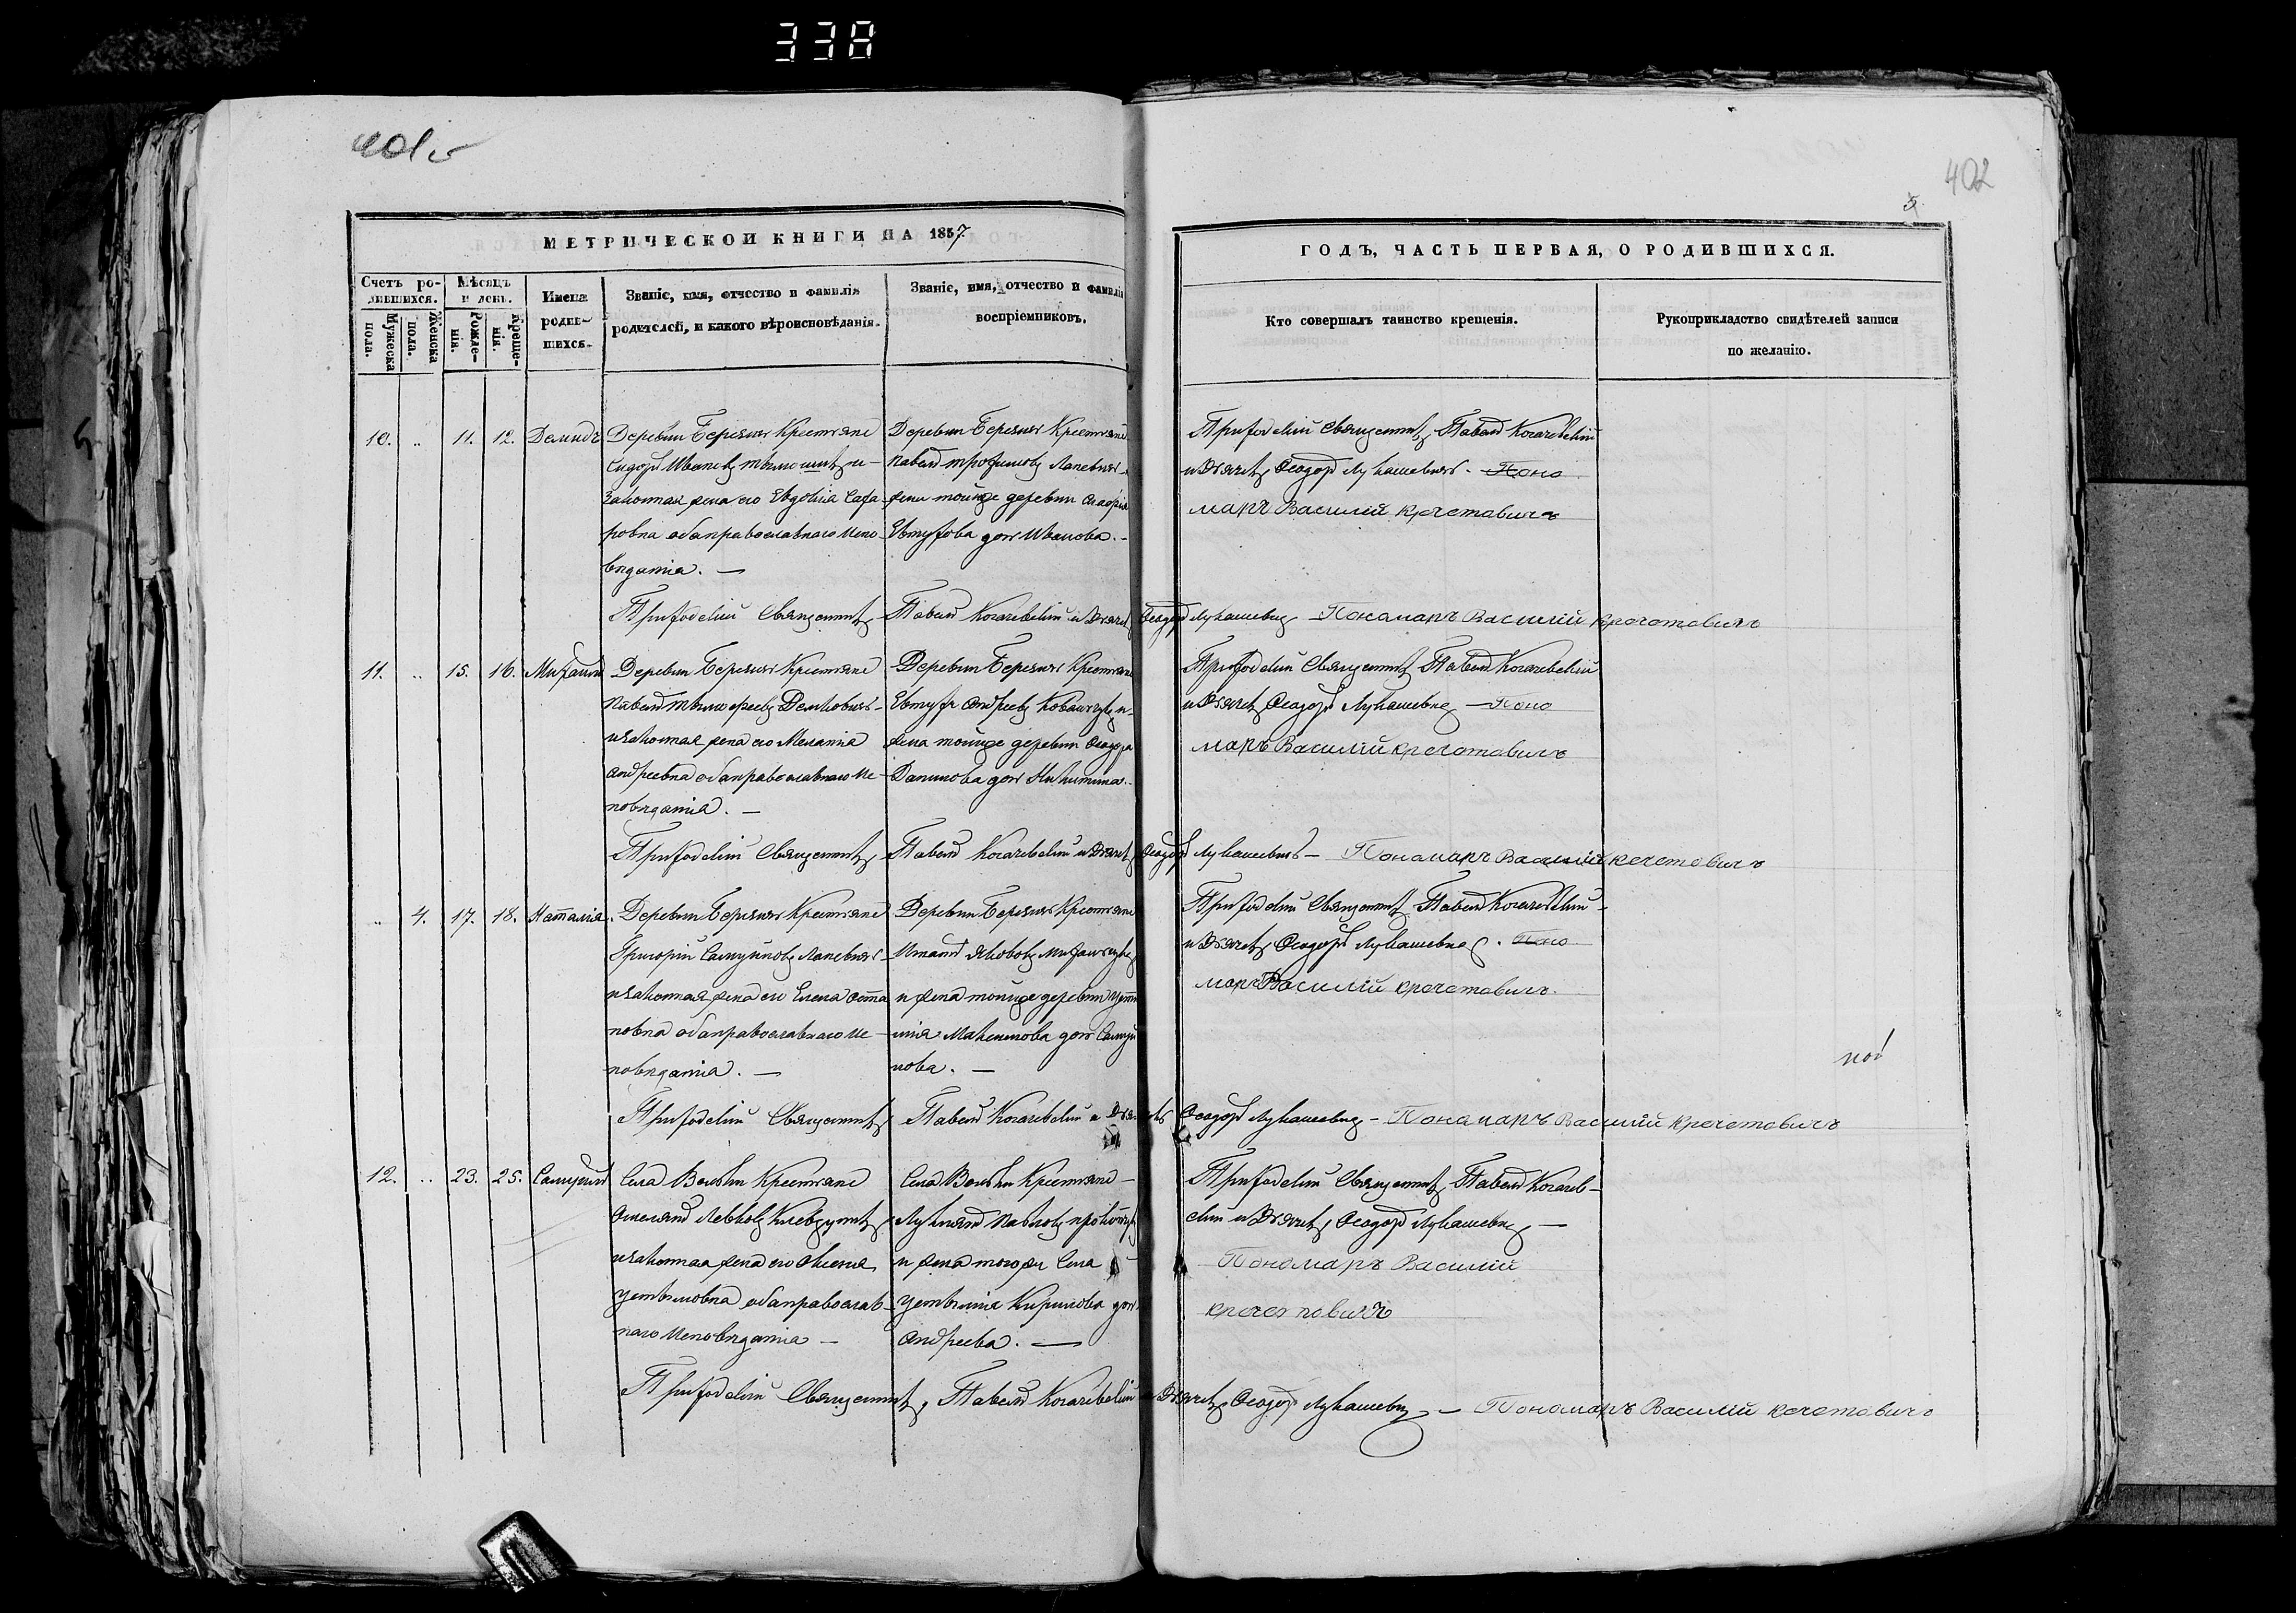 338
401 v
402
5.
МЕТРИЧЕСКОЙ КНИГИ НА 1857.
ГОДЪ, ЧАСТЬ ПЕРВАЯ, О РОДИВШИХСЯ.
Счетъ ро-
дившихся.
Мужеска
пола.
Женска
пола.
Мѣсяцъ
и день.
Рожде-
нія.
Креще-
нія.
Имена
родив-
шихся.
Званіе, имя, отчество и фамилія
родителей, и какого вѣроисповѣданія.
Званіе, имя, отчество и фамилія
воспріемниковъ.
Кто совершалъ таинство крещенія.
Рукоприкладство свидѣтелей записи
по желанію.
10. .. 11. 12. Демидъ
Деревни Березичь Крестьяне
Сидоръ Ивановъ и
законная жена его Евдокія Заха-
ровна оба православнаго испо-
вѣданія. —
Деревни Березичь Крестьяне
Павелъ Трофимовъ Лапевичь
жена тойже деревни
Евтухова дочь Иванова. -
Приходскій Священникъ Павелъ Когачевскій
и Дьячекъ Ѳеодоръ Лукашевичь. Поно
марь Василій Кречетовичъ
Приходскій Священникъ Павелъ Когачевскій и Дьячекъ Ѳеодоръ Лукашевичь — Понамарь Василій Кречетовичъ
11. .. 15. 16. Михаилъ
Деревни Березичь Крестьяне
Павелъ Тимофеевъ Демковичь
и законная жена его Меланія
Андреевна оба православнаго ис-
повѣданія. —
Деревни Березичь Крестьяне
Евтухъ Андреевъ и
жена тойже деревни Ѳеодора
Данилова дочь Никитина.
Приходскій Священникъ Павелъ Когачевскій
и Дьячекъ Ѳеодоръ Лукашевичь — Поно
марь Василій Кречетовичъ
Приходскій Священникъ Павелъ Когачевскій и Дьячекъ Ѳеодоръ Лукашевичь — Понамарь Василій Кречетовичъ
.. 4. 17. 18. Наталія
Деревни Березичь Крестьяне
Григорій Самуиловъ Лапевичь
и законная жена его Елена Оста
повна оба православнаго ис-
повѣданія. —
Деревни Березичь Крестьяне
Игнатъ Якововъ
и жена тойже деревни Усти
нія Максимова дочь Самуй
лова. —
Приходскій Священникъ Павелъ Когачевскій
и Дьячекъ Ѳеодоръ Лукашевичь. Поно
марь Василій Кречетовичъ
Приходскій Священникъ Павелъ Когачевскій и Дьячекъ Ѳеодоръ Лукашевичь — Понамарь Василій Кречетовичъ
12. .. 23. 25. Самуилъ
Села Вольки Крестьяне
Омелянъ Левковъ
и законная жена его Оксенія
Устимовна оба православ-
наго Исповѣданія —
Села Вольки Крестьяне —
Лукьянъ Павловъ
и жена тогоже Села
Устинія Кирилова дочь
Андреева. —
Приходскій Священникъ Павелъ Когачев-
скій и Дьячекъ Ѳеодоръ Лукашевичь —
Пономарь Василій
Кречетовичъ
Приходскій Священникъ Павелъ Когачевскій и Дьячекъ Ѳеодоръ Лукашевичь — Пономарь Василій Кречетовичъ